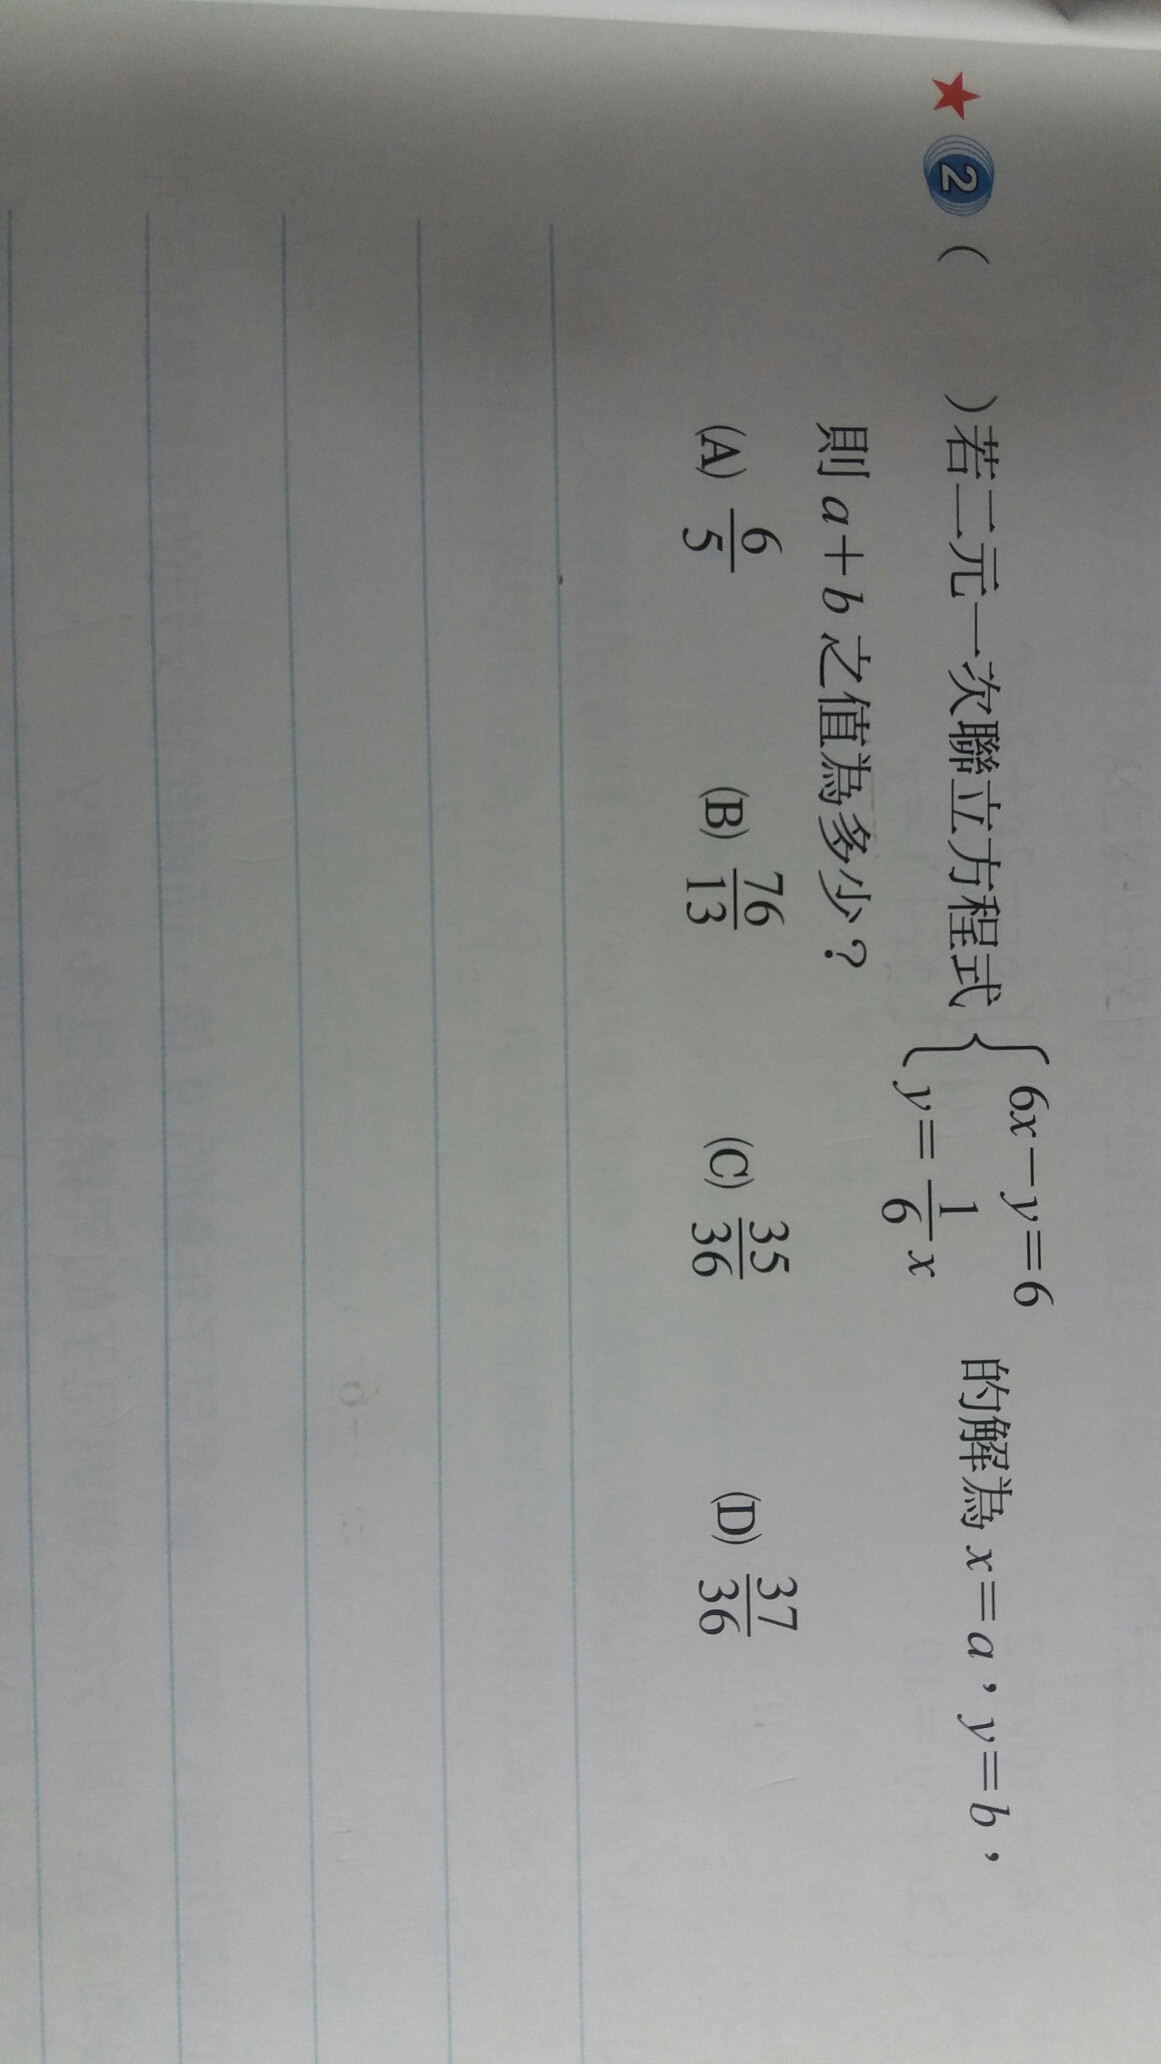 ★ 2 (   )若二元一次聯立方程式{6x－y＝6
y＝1/6 x 的解為 x＝a，y＝b，
則 a＋b 之值為多少？
(A) 6/5 (B) 76/13 (C) 35/36 (D) 37/36